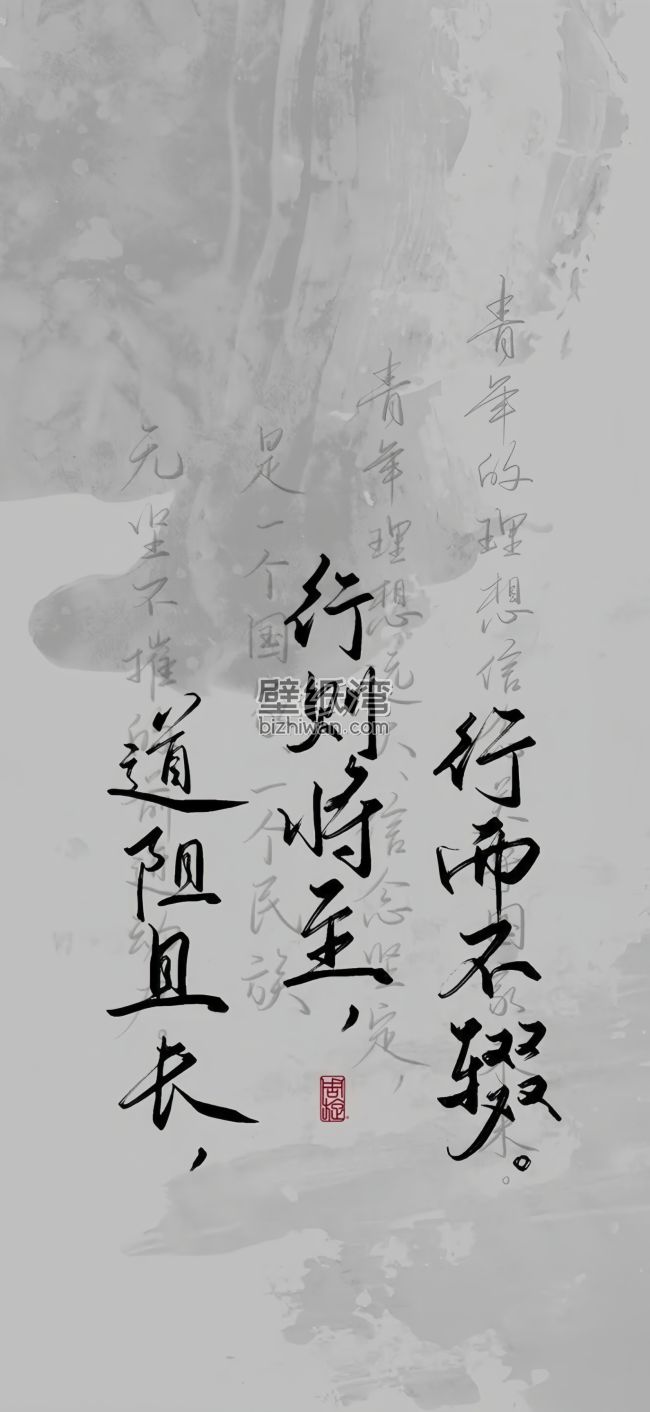 道阻且长，
行则将至，
行而不辍。
青年的理想信念关乎国家未来。
青年理想远大、信念坚定，
是一个国家、一个民族
无坚不摧的前进动力
壁纸湾
bizhiwan.com